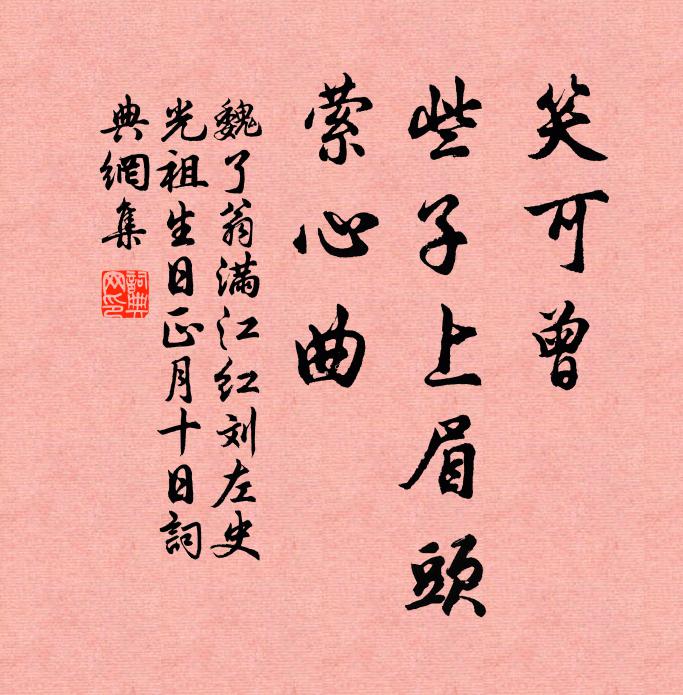 笑可曾
些子上眉頭
萦心曲
魏了翁滿江红刘左史
光祖生日正月十日詞
典網集
詞典
网印